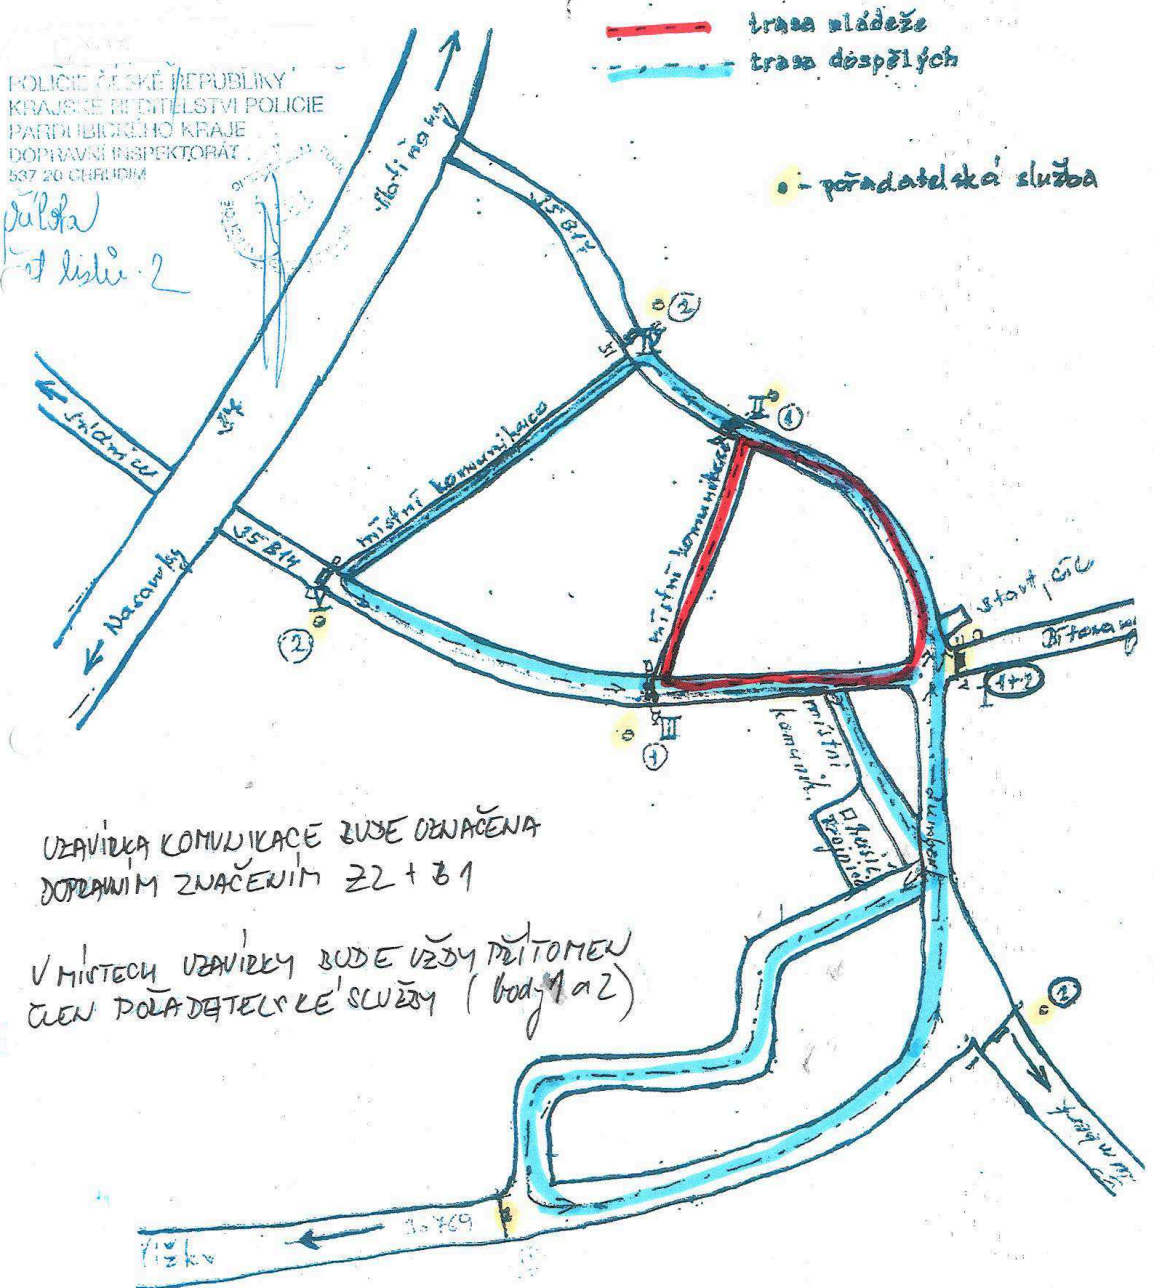 trasa mládeže
trasa dospělých
POLICIE ČESKÉ REPUBLIKY
KRAJSKÉ ŘEDITELSTVÍ POLICIE
PARDUBICKÉHO KRAJE
DOPRAVNÍ INSPEKTORÁT
537 20 CHRUDIM
Příloha
listů: 2
Slatiňany
- pořadatelská služba
35817
2
IV
II
1
37
místní komunikace
místní komunikace
35814
Nasavrky
2
start, cíl
Bítovany
I
1+2
III
1
místní
komunik.
Hasič.
zbrojnice
UZAVÍRKA KOMUNIKACE BUDE OZNAČENA
DOPRAVNÍM ZNAČENÍM Z2 + B1
V MÍSTECH UZAVÍRKY BUDE VŽDY PŘÍTOMEN
ČLEN POŘADATELSKÉ SLUŽBY (body 1 a 2)
2
Žumberk
Žumberk